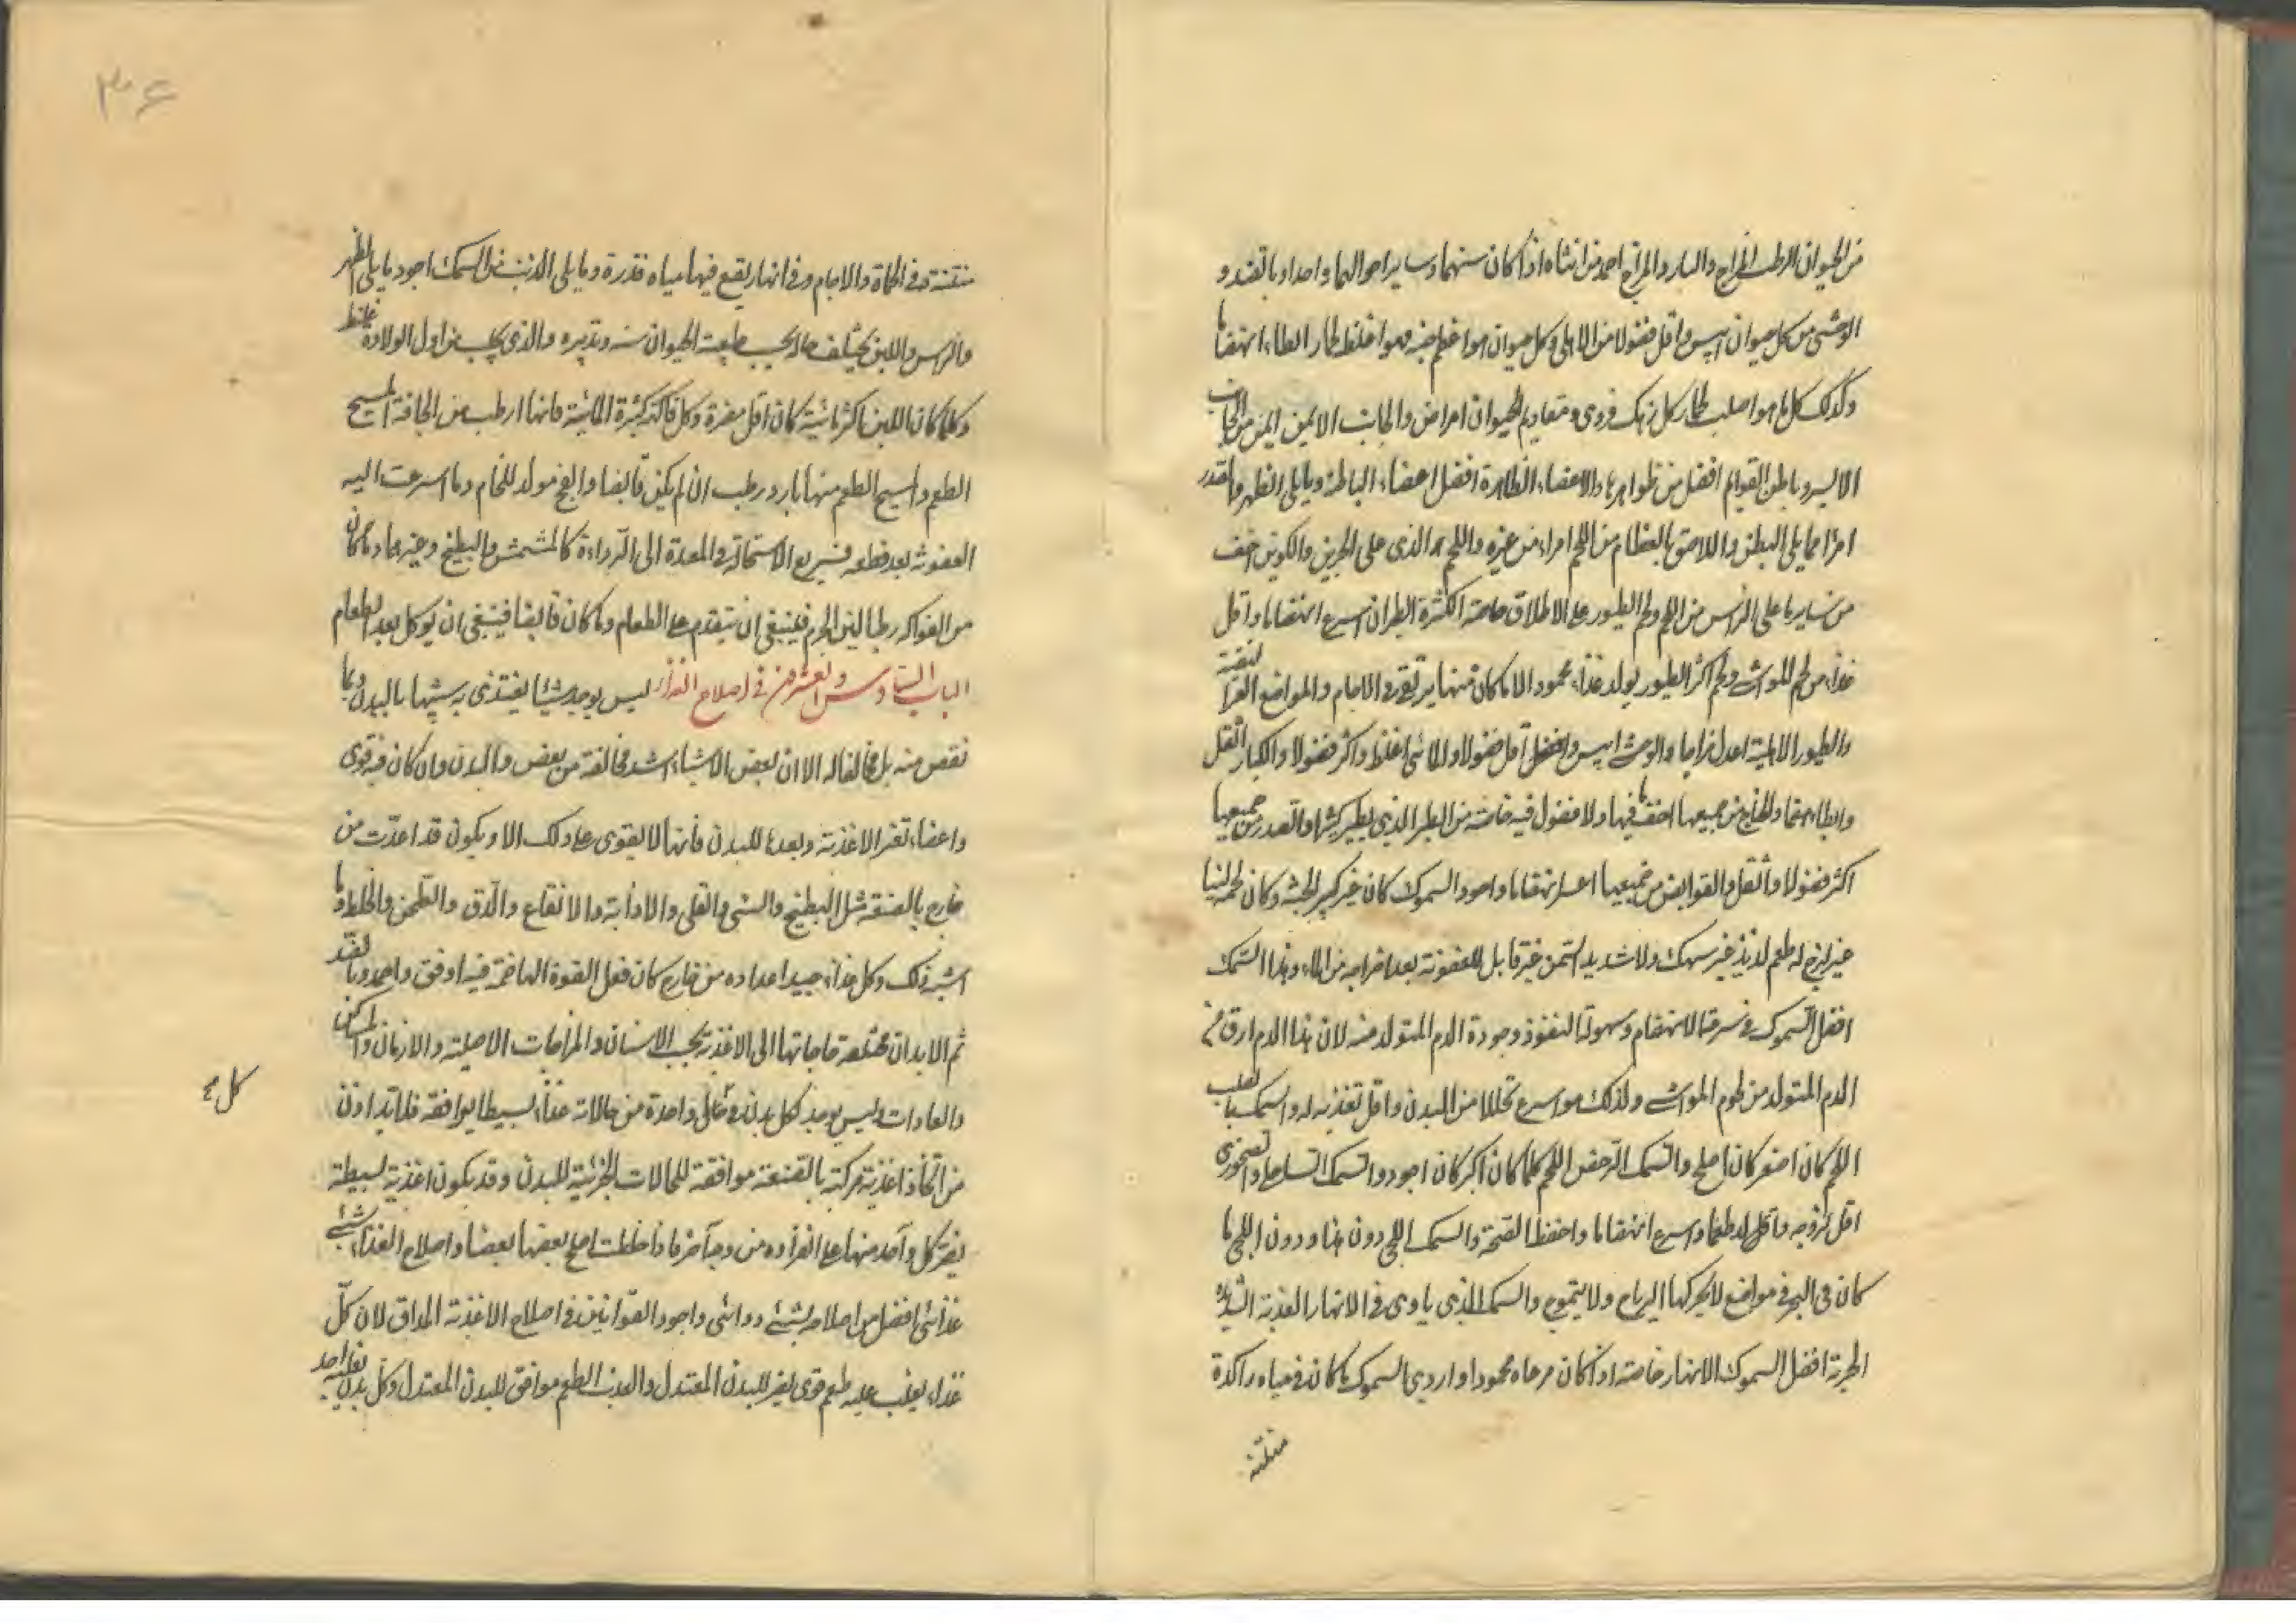 من الحيوان الرطب المزاج والبارد المزاج احمد من انثاه اذا كان سنهما وساير احوالهما واحدا وبالضد و
الوحشى من كل حيوان ايبس واقل فضولا من الاهلى وكل حيوان هو اعظم جثة فهو اغلظ لحما وابطاء انهضاما
وكذلك كل ما هو اصلب لحما وكل زهك فردى ومقاديم الحيوان امراض والجانب الايمن ايمن من الجانب
الايسر وباطن القوايم افضل من ظواهرها والاعضاء الظاهرة افضل اعضاء الباطنة ومايلى الظهر والصدر
امرا مما يلى البطن واللاصق بالعظام من اللحم امراء من غيره واللحم الذى على
من سايرها على الراس من اللحم ولحم الطيور على الاطلاق خاصة الكثيرة الطيران اسرع انهضاما واقل
غذاء من لحم المواشى ولحم اكثر الطيور يولد غذاء محمودا الا ما كان منها يرتقى فى الاجام والمواضع القذرة
والطيور الاهلية اعدل مزاجا والوحشى ايبس واقل فضولا والمائى اغلظ واكثر فضولا والكبار اثقل
وابطاء هضما والجناح من جميعها اخف ما فيها ولا فضول فيه خاصة من الطير الذى يطير كثيرا والصدر من جميعها
اكثر فضولا واثقل والقوانص من جميعها اعسر انهضاما واجود السموك كان غير كبير الجثة وكان لحمه لينا
غير لزج له طعم لذيذ غير سهك ولا شديد السمن غير قابل للعفونة بعد اخراجه من الماء وهذا السمك
افضل السموك فى سرعة الانهضام وسهولة النفوذ وجودة الدم المتولد منه لان هذا الدم ارق من
الدم المتولد من لحوم المواشى ولذلك هو اسرع تحللا من البدن واقل تغذية له والسمك الصلب
اللحم كان اصغر كان اصلح والسمك الرخص اللحم كلما كان اكبر كان اجود والسمك الساحلى والصخورى
اقل لزوجه واقل لذ طعما واسرع انهضاما واحفظ الصحة والسمك اللجى دون هذا ودون اللجى ما
كان فى البحر فى مواضع لا يحركها الرياح ولا يتموج والسمك الذى ياوى فى الانهار العذبة الشديدة
الجرية افضل السموك الانهار خاصة اذا كان مرعاه محمودا واردى السموك ما كان فى مياه راكدة
منتنة
۳۶
منتنة فى الحماة والاجام وفى انهار يقع فيها مياه قذرة ومايلى الذنب من السمك اجود مايلى الظهر
والراس واللبن يختلف حاله بحسب طبيعة الحيوان سنه وتدبيره والذى يحلب من اول الولادة غليظ
وكلما كان اللبن اكثر مائية كان اقل مضرة وكل فاكهة كثيرة المائية فانها ارطب من الجافة المسيح
الطعم والمسيح الطعم منها بارد رطب ان لم يكن قابضا والفج مولد للخام وما اسرعت اليه
العفونة بعد قطعه فسريع الاستحالة فى المعدة الى الرداءة كالمشمش والبطيخ وغيرهما وما كان
من الفواكه رطبا لين الجرم فينبغى ان يتقدم على الطعام وما كان قابضا فينبغى ان يوكل بعد الطعام
الباب السادس والعشرون فى اصلاح الغذاء ليس يوجد شيئا يغتذى به شبيها بالبدن وما
نقص منه بل مخالفا له الا ان بعض الاشياء اشد مخالفة من بعض والبدن وان كان فيه قوى
واعضاء تغير الاغذية وبعدها للبدن فانها لا يقوى على ذلك الا ويكون قد اعدت من
خارج بالصنعة مثل الطبيخ والشى والقلى والاذابة والانقاع والدق والطحن والخلط وما
اشبه ذلك وكل غذاء جيد اعداده من خارج كان فعل القوة الهاضمة فيه اوفق واحمد وبالضد
ثم الابدان مختلفة حاجاتها الى الاغذية بحسب الاسنان والمزاجات الاصلية والازمان والمساكن
والعادات وليس يوجد لكل بدن فى كل واحدة من حالاته غذاء بسيطا يوافقه فلا بد اذن
كل
من اتخاذ اغذية مركبة بالصنعة موافقة للحالات الجزئية للبدن وقد يكون اغذية بسيطة
يضر كل واحد منها على انفراده من وجه آخر فاذا خلطت اصلح بعضها بعضا واصلاح الغذاء بشىء
غذائى افضل من اصلاحه بشىء دوائى واجود القوانين فى اصلاح الاغذية المذاق لان كل
غذاء يغلب عليه طعم قوى يضر للبدن المعتدل والعذب الطعم موافق للبدن المعتدل وكل بدن